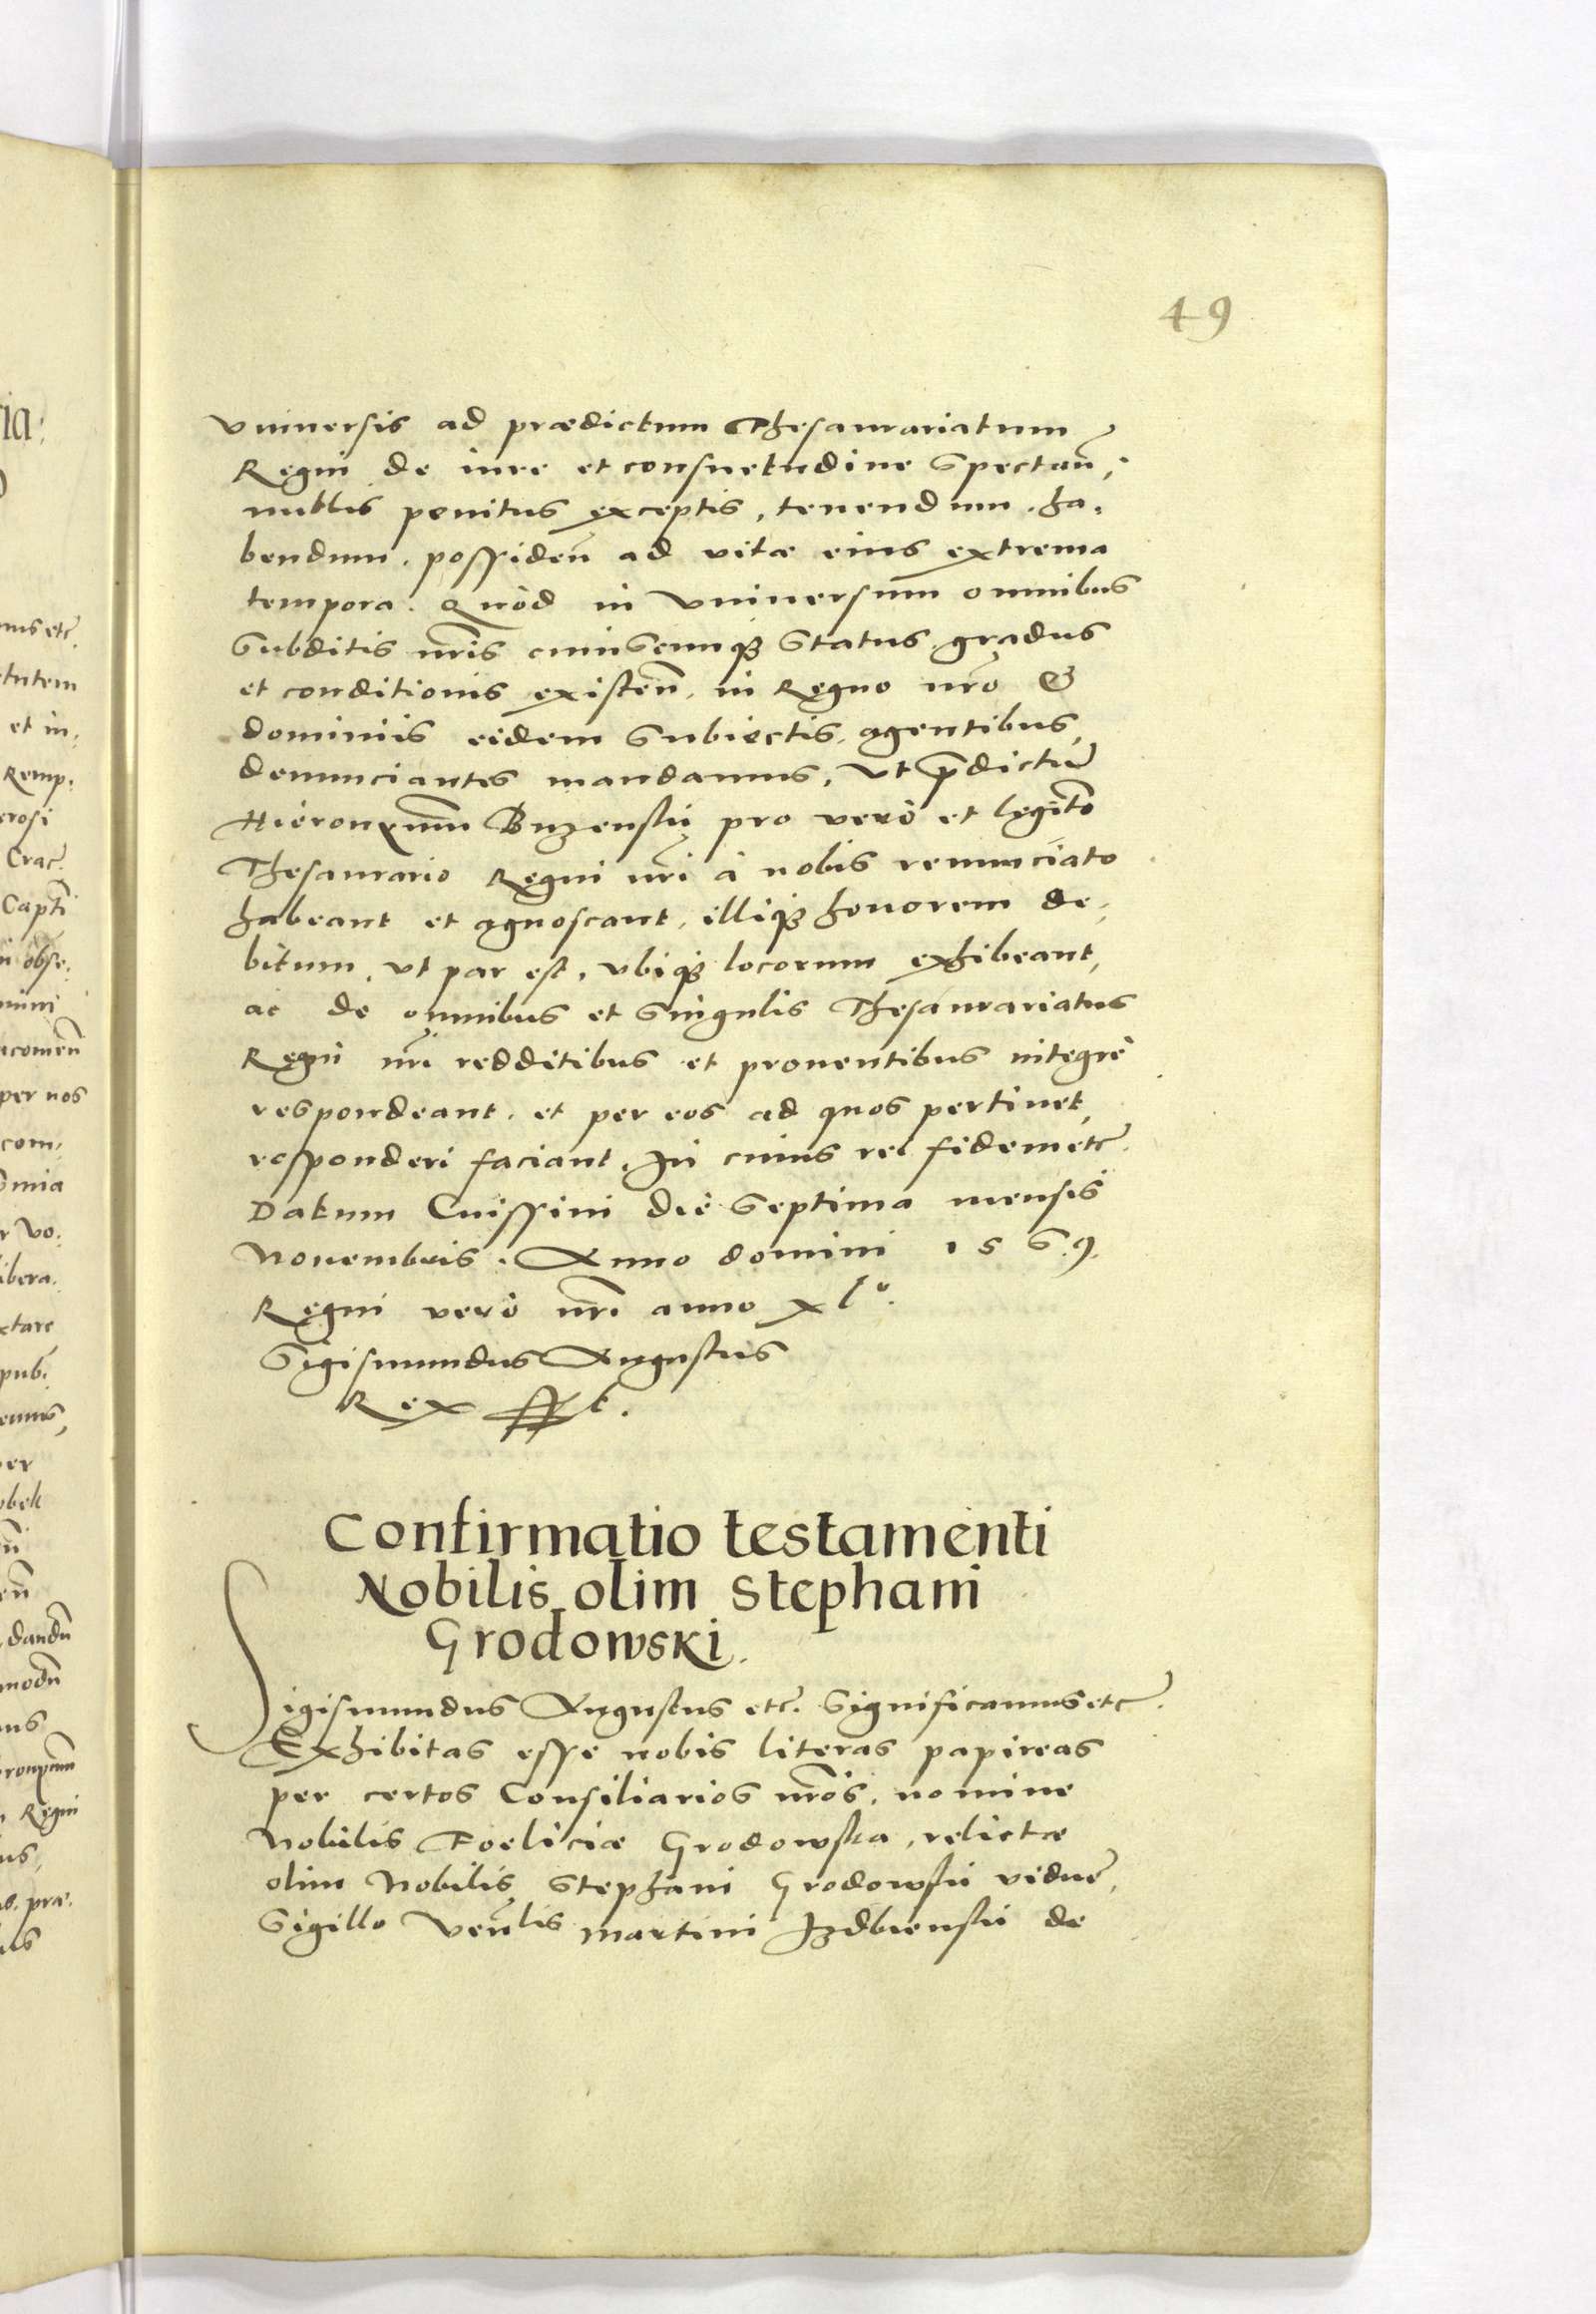 49
vniuersis ad prædictum Thesaurariatum
Regni de iure et consuetudine spectan̄,
nullis penitus exceptis, tenendum, ha,
bendum, possiden̄ ad vitæ eius extrema
tempora. Quòd in vniuersum omnibus
Subditis nr̄is cuiuscunqʒ Status, gradus
et conditionis existen̄, in Regno nr̄o &
dominiis eidem Subiectis, agentibus,
denunciantes mandamus, Vt p̄dictū
Hieronymum Buzenskij pro verò et legit̄o
Thesaurario Regni nr̄i à nobis renunciato
habeant et agnoscant, illiqʒ honorem de,
bitum, vt par est, vbiqʒ locorum exhibeant,
ac de omnibus et Singulis Thesaurariatus
Regni nr̄i redditibus et prouentibus integrè
respondeant, et per eos ad quos pertinet,
responderi faciant, In cuius rei fidem etc̄.
Datum Cnissini die Septima mensis
Nouembris. Anno domini 1569.
Regni verò nr̄i anno xlº.
Sigismundus Augustus
Rex sst.
Confirmatio testamenti
Nobilis olim Stephani
Grodowski.
Sigismundus Augustus etc̄. Significamus etc̄.
Exhibitas esse nobis literas papireas
per certos Consiliarios nr̄os, nomine
Nobilis Foeliciæ Grodowska, relictæ
olim Nobilis Stephani Grodowskii viduę,
Sigillo Ven̄lis Martini Izdbienskii de
ria:
mus etc̄.
et in,
Remp.
Crac̄.
Capt̄i
i obse,
per nos
com,
r vo,
libera,
pub.
dandū
Regni
præ.